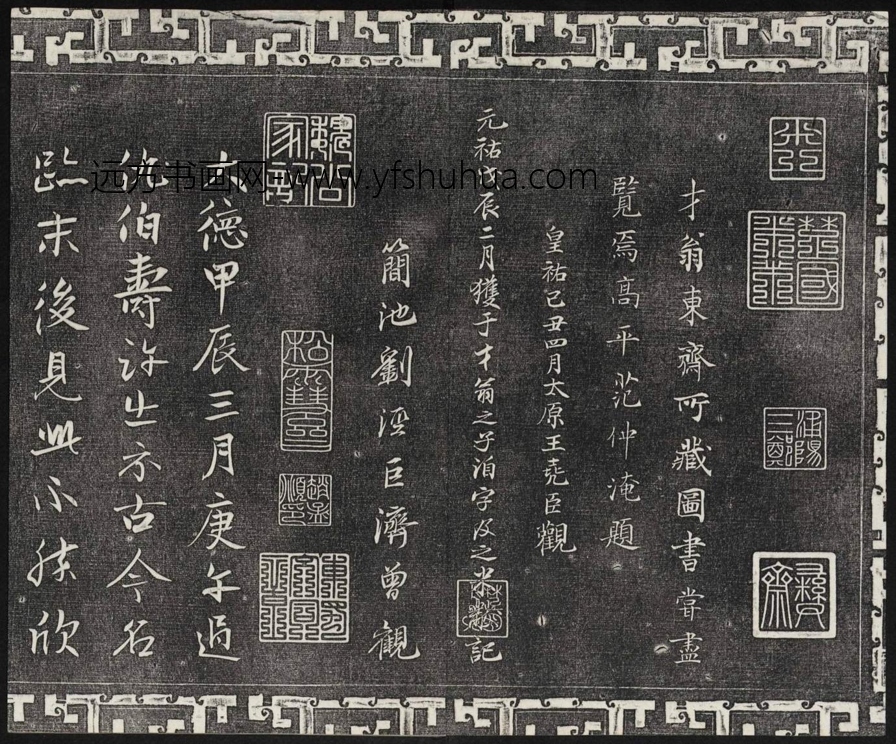 才翁東齋所藏圖書嘗盡
覽焉高平范仲淹題
皇祐己丑四月太原王堯臣觀
元祐戊辰二月獲于才翁之子洎字及之米黻記
簡池劉涇巨濟曾觀
大德甲辰三月庚午過
伯壽許出示古今名
跡末後見此不勝欣
远方书画网-www.yfshuhua.com